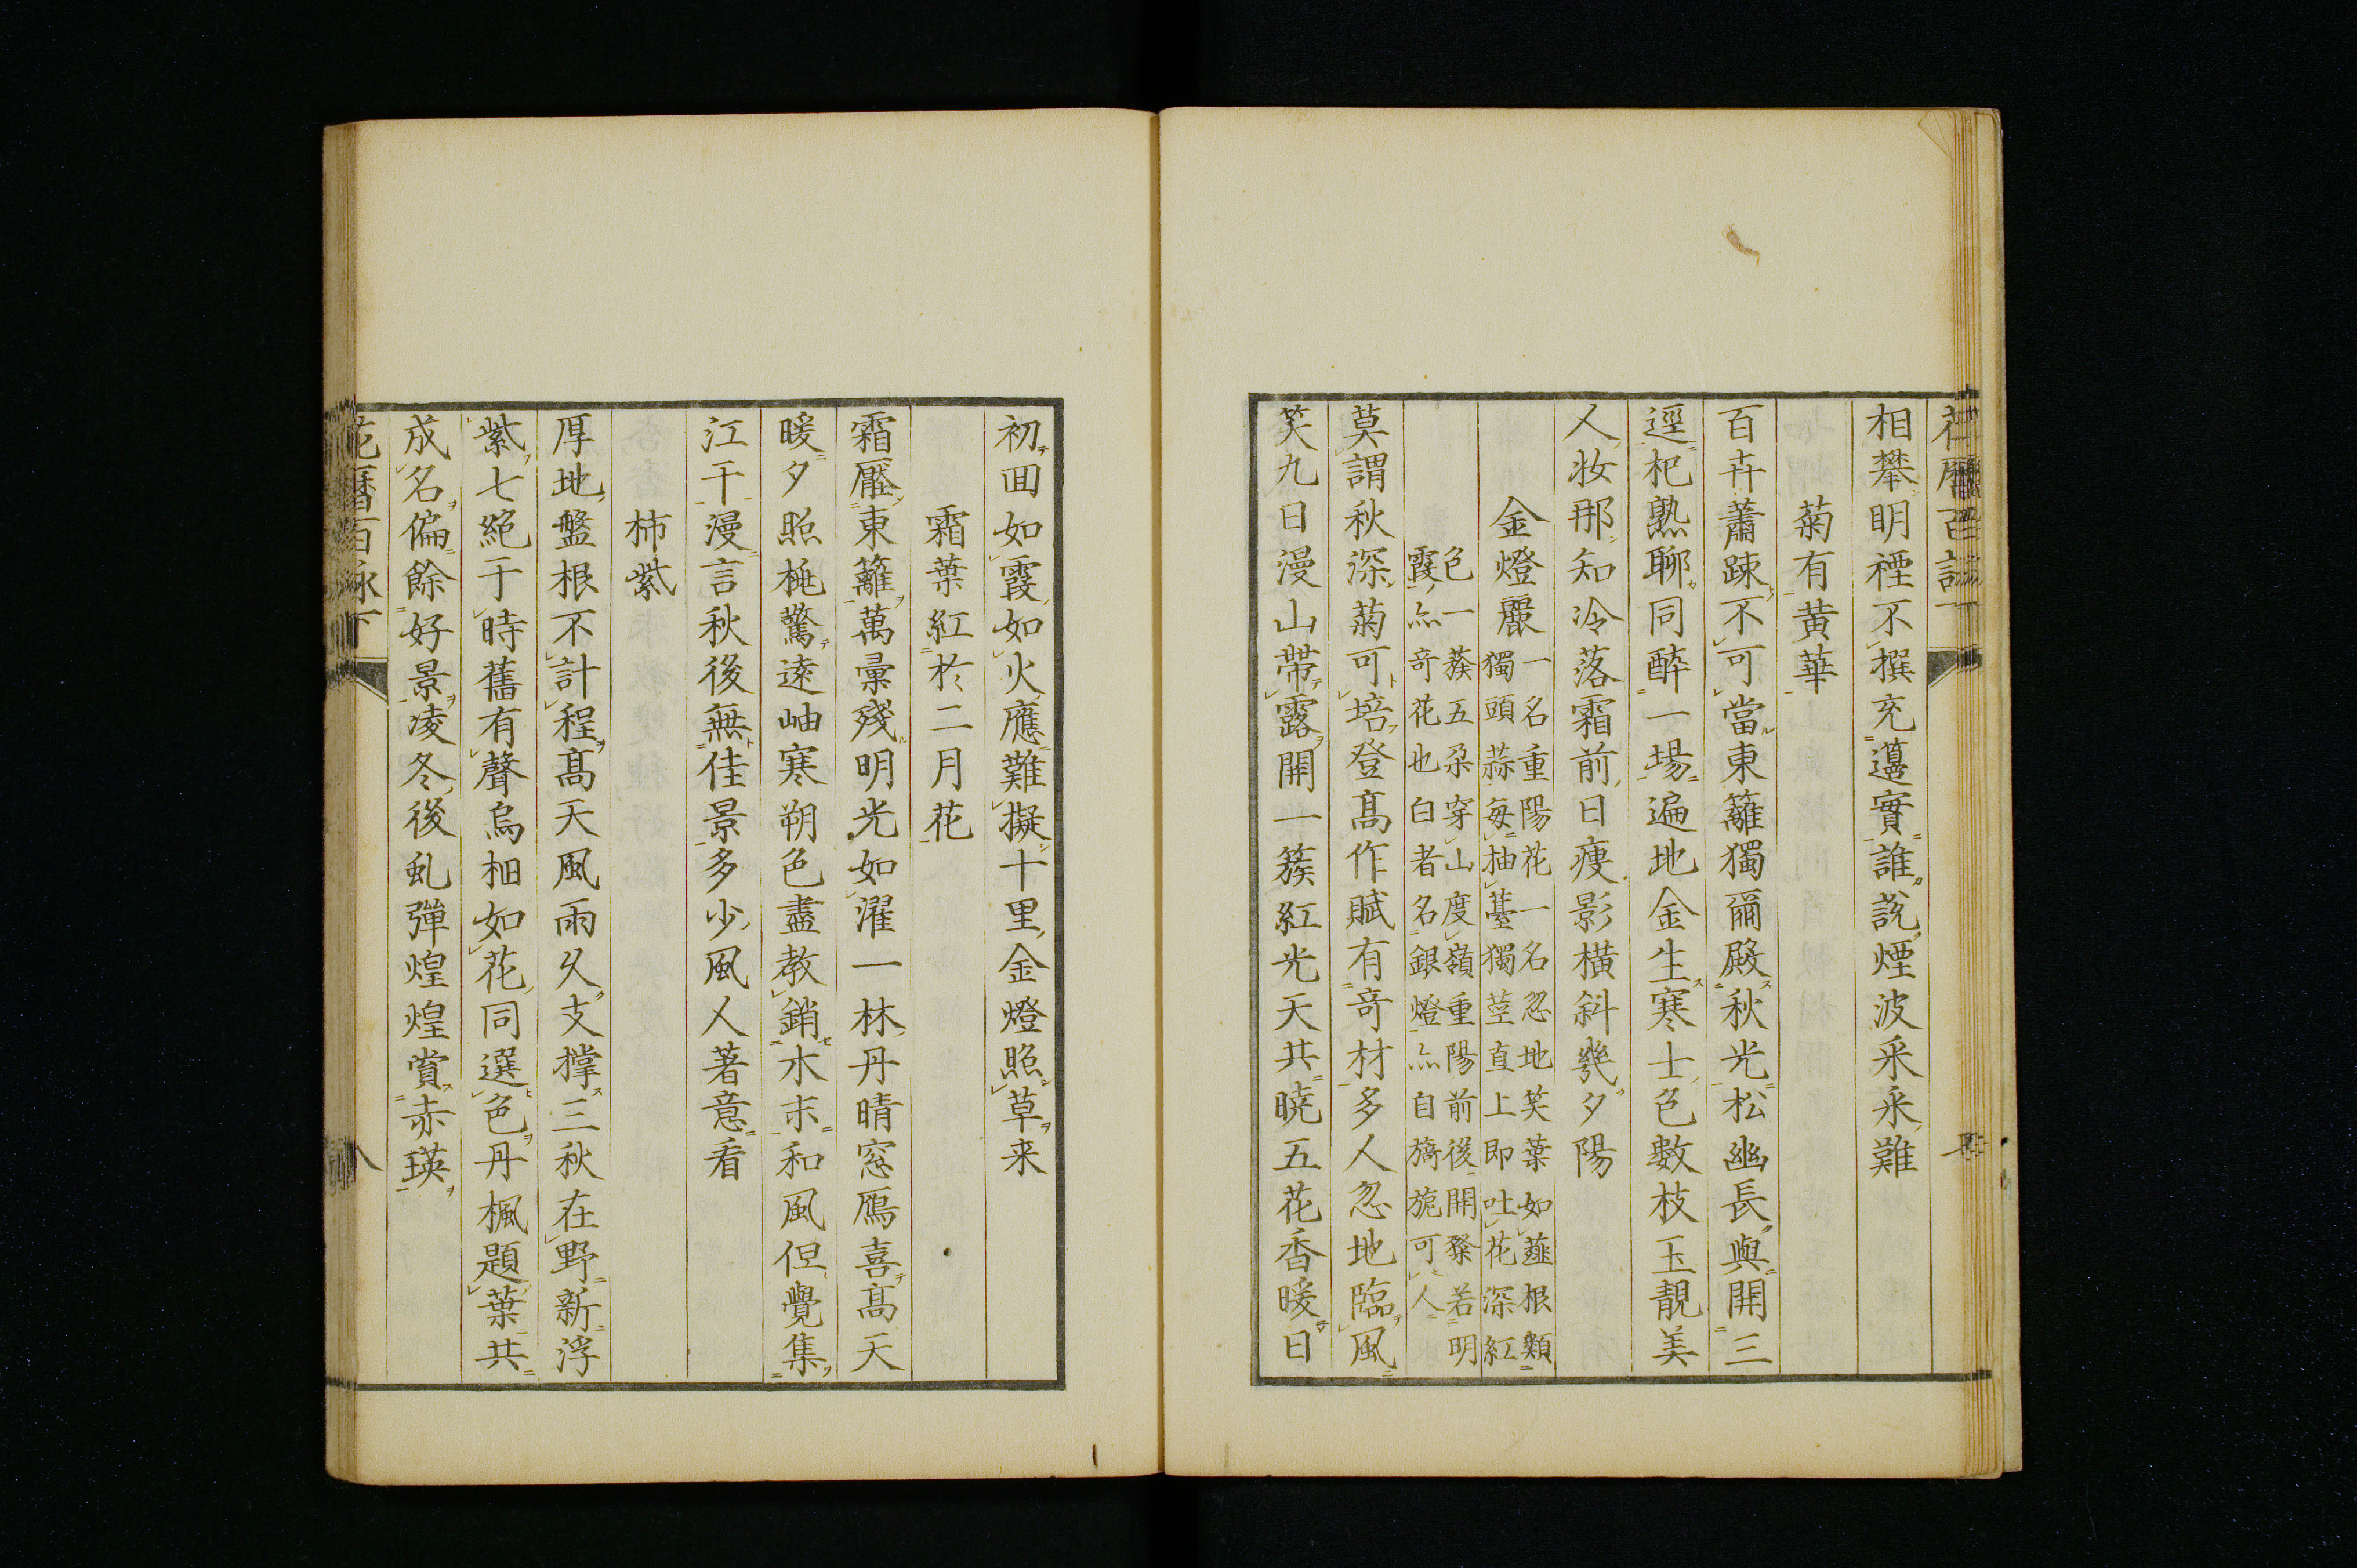 相攀明禋不撰充籩實誰說煙波采采難
菊有黃華
百卉蕭踈不可當東籬獨爾殿秋光松幽長與開三
逕杞熟聊同醉一場遍地金生寒士色數枝玉靚美
人妝那知冷落霜前日瘦影橫斜幾夕陽
金燈麗
一名重陽花一名忽地笑葉如薤根類
獨頭蒜每抽薹獨莖直上即吐花深紅
色一蔟五朶穿山度嶺重陽前後開粲若明
霞亦奇花也白者名銀燈亦自旖旎可人
莫謂秋深菊可培登高作賦有奇材多人忽地臨風
笑九日漫山帶露開一簇紅光天共曉五花香暖日
初回如霞如火應難擬十里金燈照草来
霜葉紅於二月花
霜壓東籬萬彙殘明光如濯一林丹晴窓鴈喜高天
暖夕照梔驚遠岫寒朔色盡教銷木末和風但覺集
江干漫言秋後無佳景多少風人著意看
柿紫
厚地盤根不計程高天風雨久支撑三秋在野新浮
紫七絕于時舊有聲烏桕如花同選色丹楓題葉共
成名偏餘好景凌冬後虬彈煌煌賞赤瑛
花曆百詠下
八